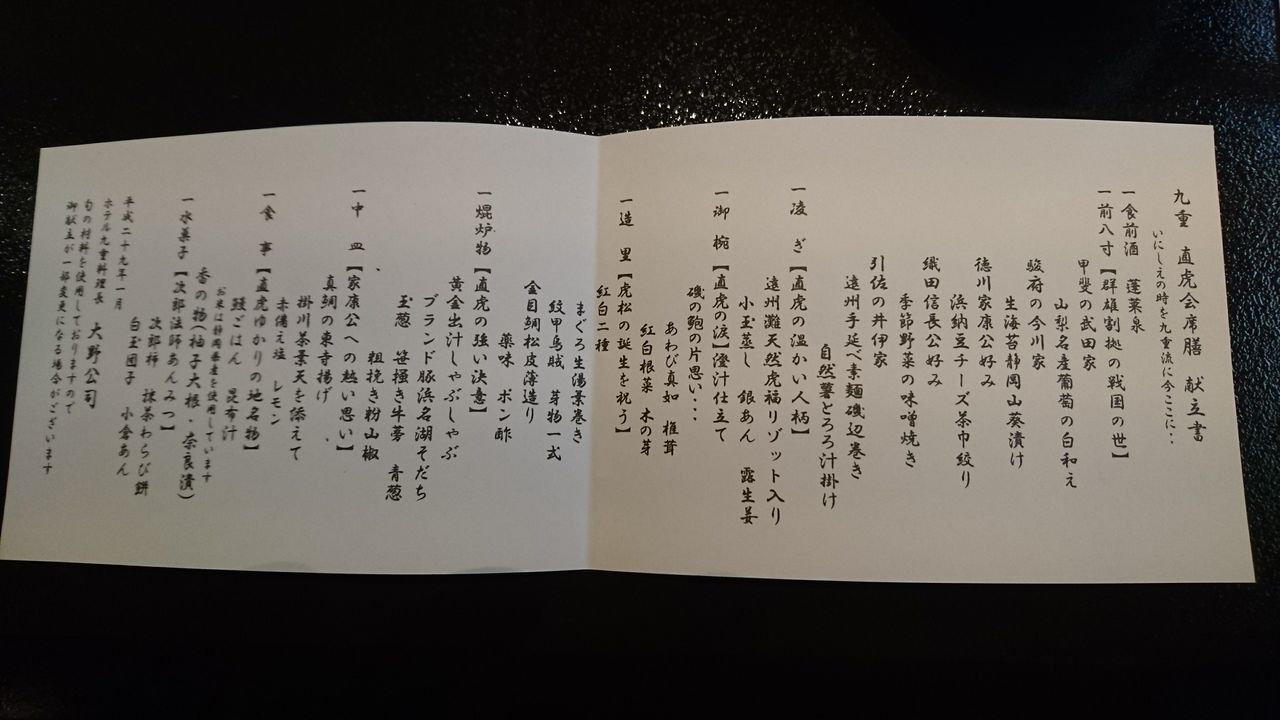 九重 直虎会席膳 献立書
いにしえの時を九重流に今ここに・・
一食前酒 蓬莱泉
一前八寸【群雄割拠の戦国の世】
甲斐の武田家
山梨名産葡萄の白和え
駿府の今川家
生海苔静岡山葵漬け
徳川家康公好み
浜納豆チーズ茶巾絞り
織田信長公好み
季節野菜の味噌焼き
引佐の井伊家
遠州手延べ素麺磯辺巻き
自然薯とろろ汁掛け
一凌 ぎ【直虎の温かい人柄】
遠州灘天然虎福リゾット入り
小玉蒸し 銀あん 露生姜
一御 椀【直虎の涙】澄汁仕立て
磯の鮑の片思い・・・
あわび真如 椎茸
紅白根菜 木の芽
一造 里【虎松の誕生を祝う】
紅白二種
まぐろ生湯葉巻き
紋甲烏賊 芽物一式
金目鯛松皮薄造り
薬味 ポン酢
一焜炉物【直虎の強い決意】
黄金出汁しゃぶしゃぶ
ブランド豚浜名湖そだち
玉葱 笹掻き牛蒡 青葱
粗挽き粉山椒
一中 皿【家康公への熱い思い】
真鯛の東寺揚げ
掛川茶葉天を添えて
赤備え塩 レモン
一食 事【直虎ゆかりの地名物】
鰻ごはん 昆布汁
お米は静岡県産を使用しています
香の物(柚子大根・奈良漬)
一水菓子【次郎法師あんみつ】
次郎柿 抹茶わらび餅
白玉団子 小倉あん
平成二十九年一月
ホテル九重料理長 大野公司
旬の材料を使用しておりますので
御献立が一部変更になる場合がございます